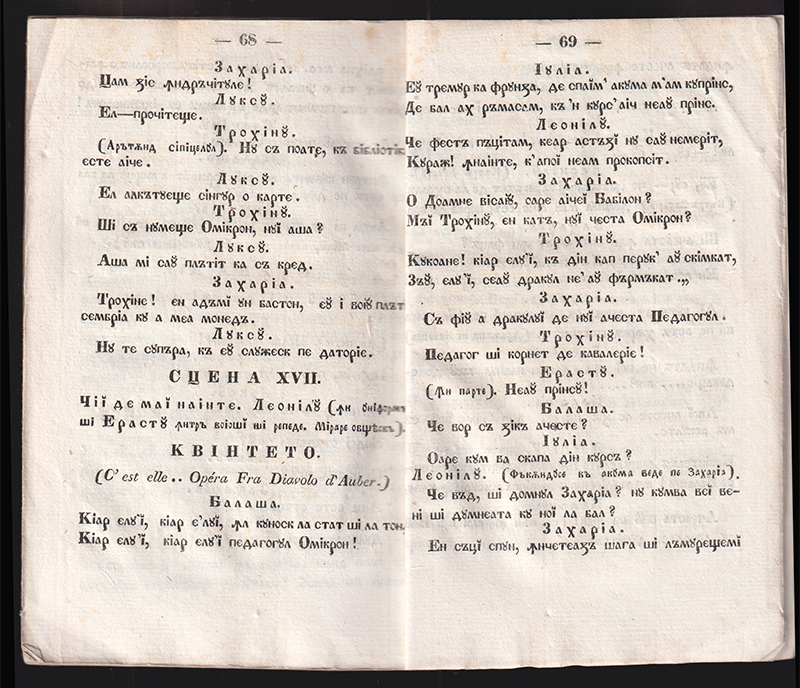 — 68 —
Захарія.
Цам зіс ꙟндръчітуле!
Луксȣ.
Ел—прочітеще.
Трохінȣ.
(Арътѫнд сіпіцелул). Ну съ поате, къ бібліотік
есте аіче.
Луксȣ.
Ел алкътуеще сінгур о карте.
Трохінȣ.
Ші съ нумеще Омікрон, нуї аша?
Луксȣ.
Аша мі саȣ плътіт ка съ кред.
Захарія.
Трохіне! ен адъмі ун бастон, еȣ і воіȣ плът
сембріа ку а меа монедъ.
Луксȣ.
Ну те супъра, къ еȣ служеск пе даторіе.
СЦЕНА XVII.
Чії де маі наінте. Леонілȣ (ꙟн уніформъ
ші Ерастȣ ꙟнтръ воіоші ші репеде. Міраре общѣскъ).
КВІНТЕТО.
(C'est elle.. Opéra Fra Diavolo d'Auber.)
Балаша.
Кіар елу'ї, кіар е'луї, ꙟл куноск ла стат ші ла тон.
Кіар елу'ї, кіар елу'ї педагогул Омікрон!
— 69 —
Іуліа.
Еȣ тремур ка фрунза, де спаїм' акума м'ам купрінс,
Де бал ах ръмасам, къ 'н курс' аіч неаȣ прінс.
Леонілȣ.
Че фест пъцітам, кеар астъзї ну саȣ немеріт,
Кураж! ꙟнаінте, к'апої неам прокопсіт.
Захаріа.
О Доамне вісаіȣ, саре аічеї Бабілон?
Мъї Трохінȣ, ен катъ, нуї честа Омікрон?
Трохінȣ.
Кукоане! кіар елу'ї, къ дін кап перук' аȣ скімкат,
Зъȣ, елу'ї, сеаȣ дракул не'аȣ фърмъкат.„
Захаріа.
Съ фіȣ а дракулуї де нуї ачеста Педагогул.
Трохінȣ.
Педагог ші корнет де кавалеріе!
Ерастȣ.
(ꙟн парте). Неаȣ прінсȣ!
Балаша.
Че вор съ зікъ ачесте?
Іуліа.
Оаре кум ва скапа дін курсъ?
Леонілȣ. (Фъкѫндусе къ акума веде пе Захаріа).
Че въд, ші домнул Захаріа? ну кумва всї ве-
ні ші думнеата ку ної ла бал?
Захаріа.
Ен съцї спун, ꙟнчетеазъ шага ші лъмурещемї